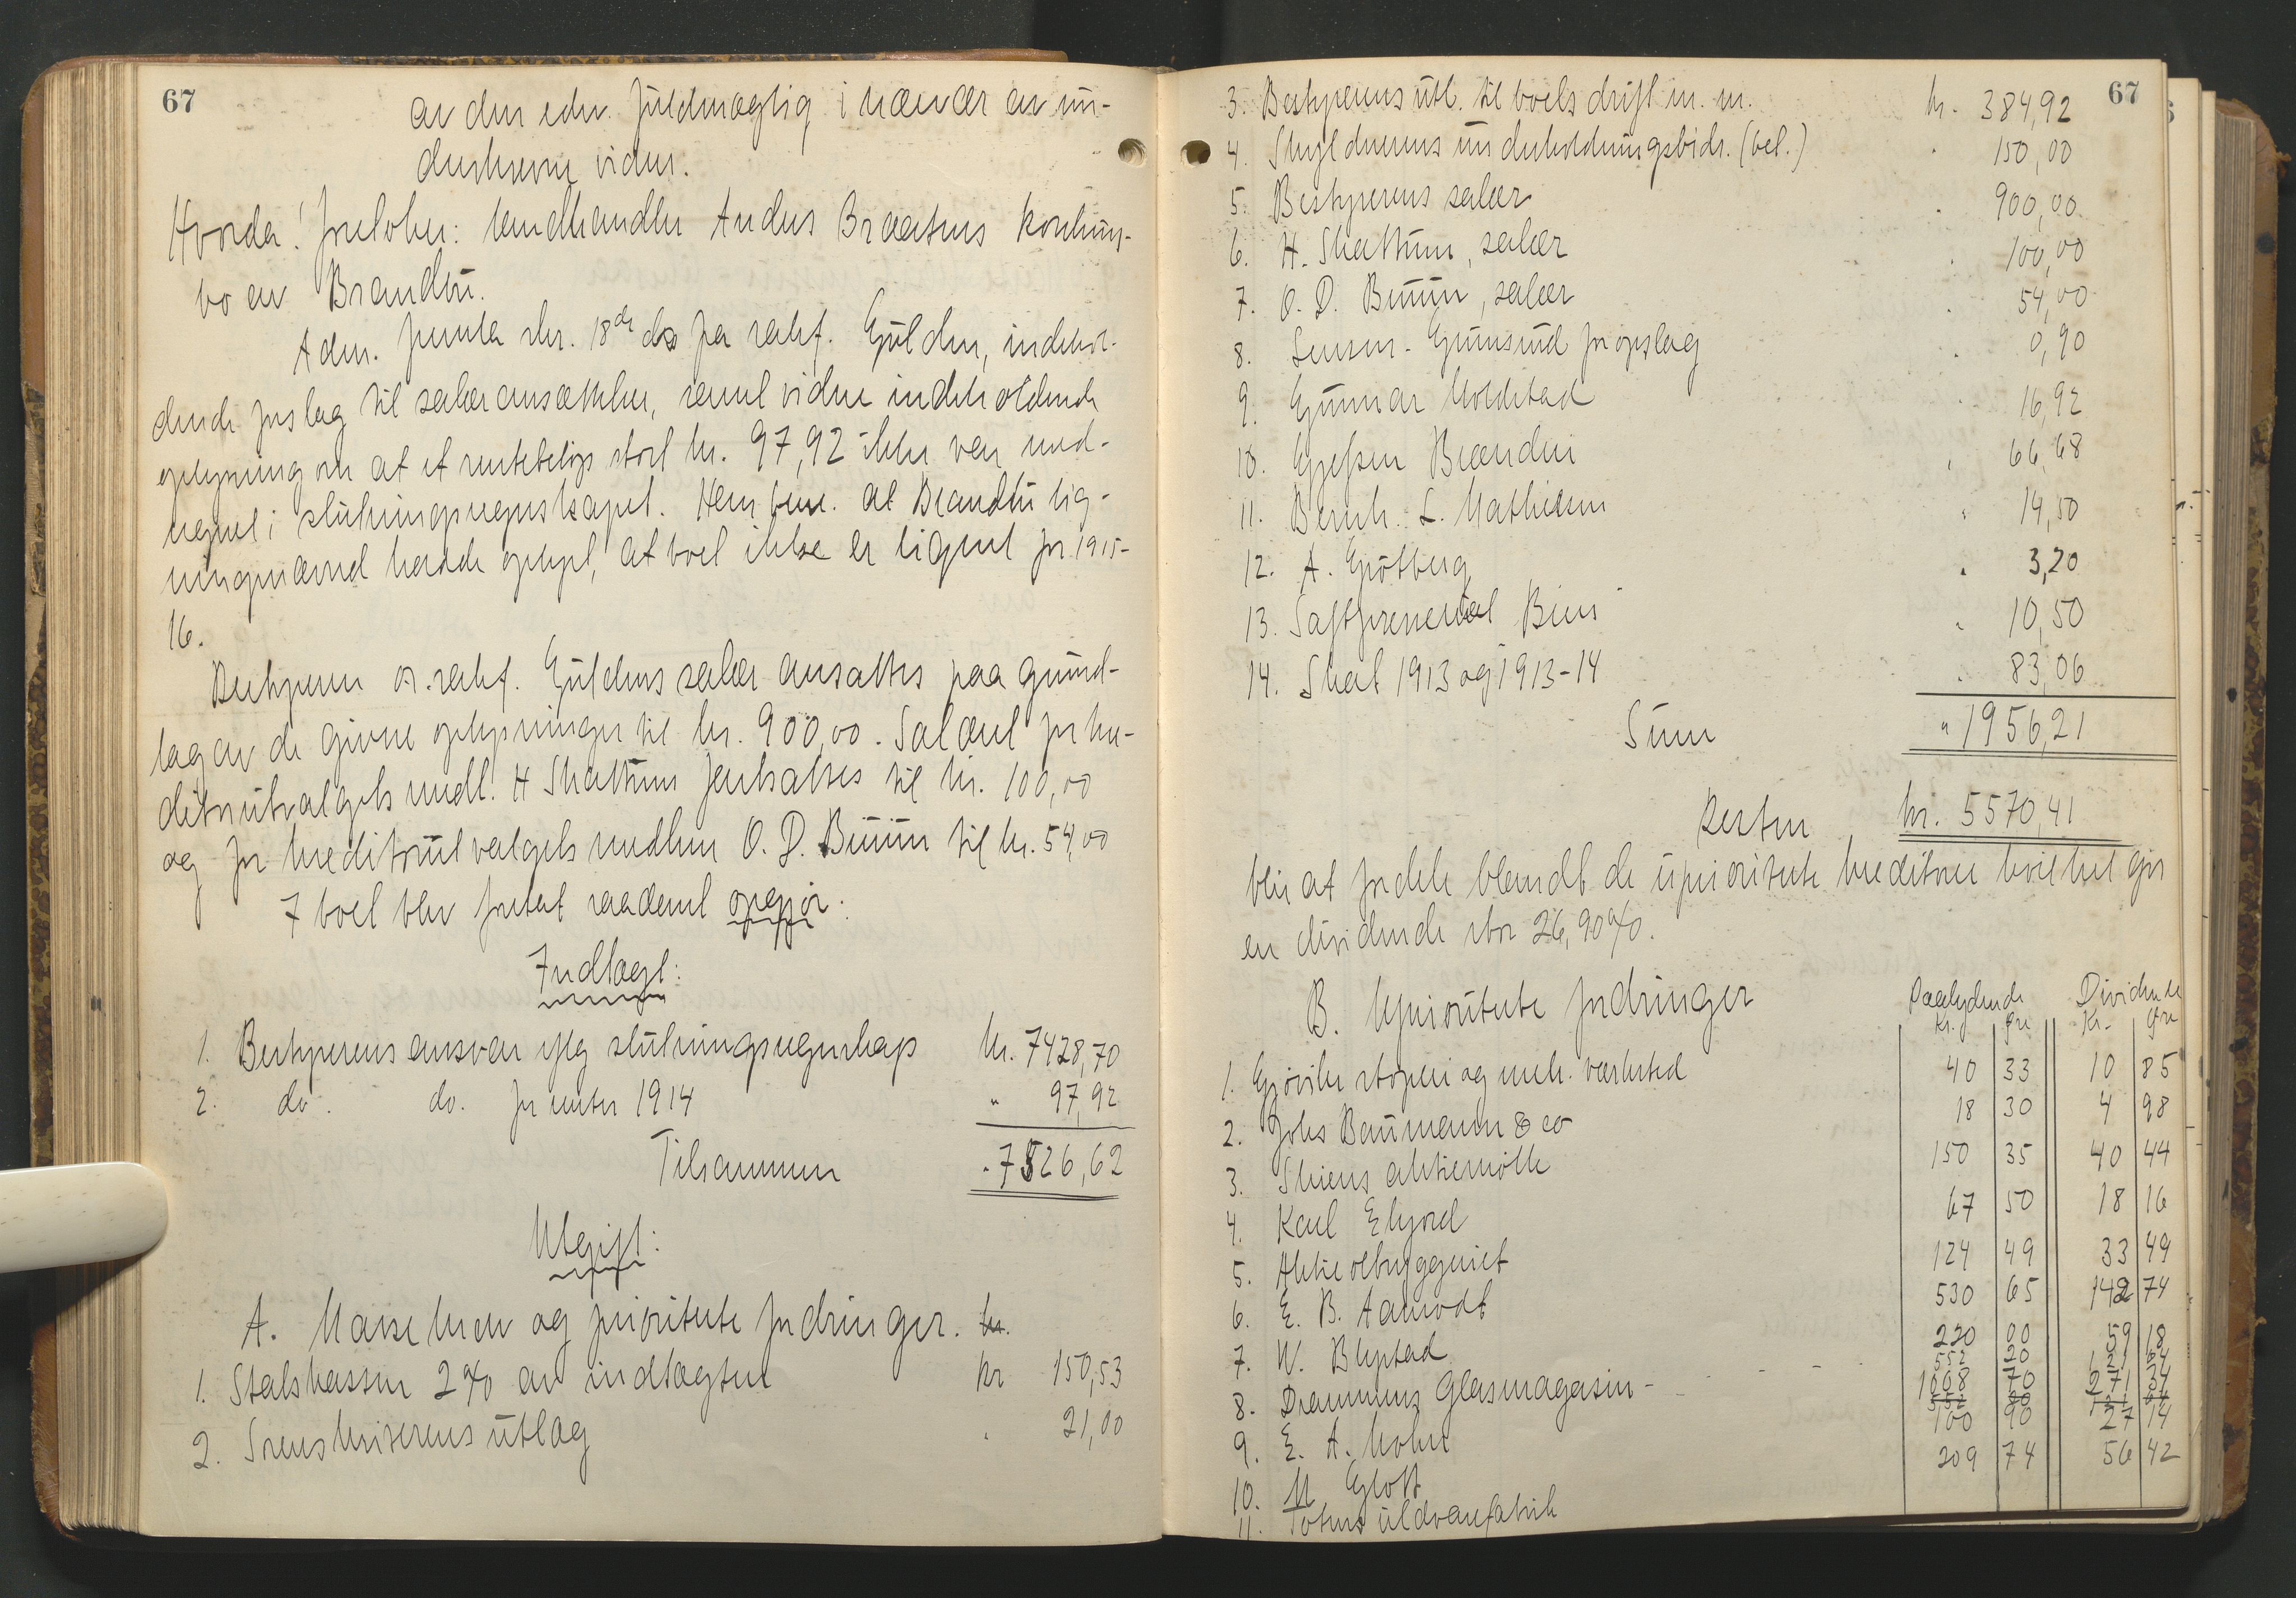 67
av den edsv. fuldmægtig i nærvær av un-
derskrevne vidner.
Hvorda! foreløber: landhandler Anders Braatens konkurs-
bo av Brandbu.
Adm. fremla skr. 18de ds fra sakf. Gulden, indehol-
dende forslag til salæransættelser, samt videre indeholdende
oplysning om at et rentebeløp stort kr. 97,92 ikke var med-
regnet i slutningsregnskapet. Han bem. at Brandbu lig-
ningsnævnd hadde oplyst, at boet ikke er lignet for 1915-
16.
Bestyreren o.r.sakf. Guldens salær ansattes paa grund-
lag av de givne oplysninger til kr. 900,00. Salæret for kre-
ditorutvalgets medl. H Skattum fastsattes til kr. 100,00
og for kreditorutvalgets medlem O. D. Buum til kr. 54,00
I boet blev foretat saadant opgjør:
Indtægt:
1. Bestyrerens ansvar iflg slutningsregnskap kr. 7428,70
2. do. do. for renter 1914 " 97,92
Tilsammen " 7526,62
Utgift:
A. Massekrav og prioriterte fordringer. kr.
1. Statskassen 2% av indtægten kr 150,53
2. Sorenskriverens utlæg " 21,00
67
3. Bestyrerens utl. til boets drift m. m. kr. 384,92
4. Skyldnerens underholdningsbidr. (bet.) " 150,00
5. Bestyrerens salær " 900,00
6. H. Skattum, salær " 100,00
7. O. D. Buum, salær " 54,00
8. Lensm. Grimsrud for opslag " 0,90
9. Gunnar Moldstad " 16,92
10. Brandbu " 66,68
11. Bernh. L. Mathiesen " 14,50
12. A. Grøtberg " 3,20
13. Saftpresseriet Bius " 10,50
14. Skat 1913 og 1913-14 " 83,06
Sum " 1956,21
Resten kr. 5570,41
blir at fordele blandt de uprioriterte kreditorer hvilket gir
en dividende stor 26,90%.
B. Uprioriterte fordringer Paalydende Dividende
Kr. Øre Kr. Øre
1. Gjøvik støperi og mek. verksted 40 33 10 85
2. Johs Baumann & co 18 30 4 98
3. Skiens aktiemølle 150 35 40 44
4. Karl 67 50 18 16
5. Aktieølbryggeriet 124 49 33 49
6. E. B. Aamodt 530 65 142 74
7. W. Blystad 220 00 59 18
8. Drammens Glasmagasin - 1008 70 271 34
9. E. A. Mohn 100 90 27 14
10. M Glott 209 74 56 42
11. Totens uldvarefabrik